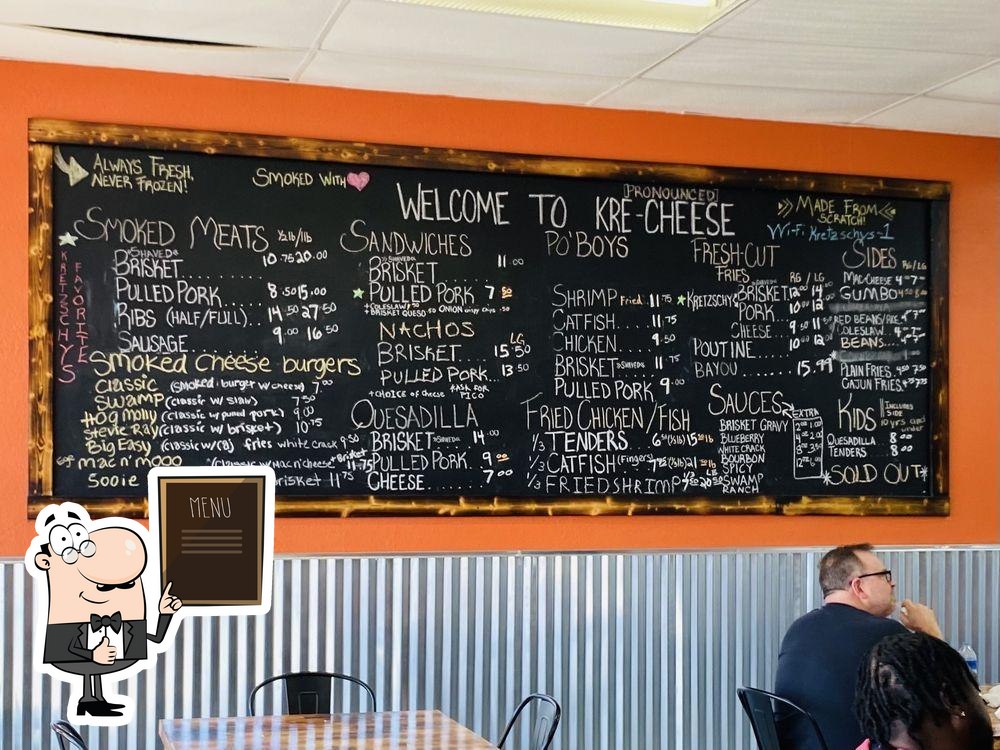 ALWAYS FRESH,
NEVER FROZEN!
SMOKED WITH
WELCOME TO KRE-CHEESE
[PRONOUNCED]
MADE FROM
SCRATCH!
Wi-Fi Kretzschys-1
KRETZSCHYS
FAVORITE
SMOKED MEATS ½lb/lb
"SHAVED"
BRISKET........ 10.75 20.00
PULLED PORK..... 8.50 15.00
RIBS (HALF/FULL)... 14.50 27.50
SAUSAGE........ 9.00 16.50
Smoked Cheese burgers
Classic (smoked burger w cheese) 7.00
Swamp (classic w/ slaw) 7.50
Hog Molly (classic w/ pulled pork) 9.00
Stevie Ray (classic w/ brisket) 10.75
Big Easy (classic w/(2) fries white crack 9.50
mac n' moo (classic w/ mac n' cheese + Brisket 11.75
Sooie
brisket 11.75
SANDWICHES
"SHAVED"
BRISKET 11.00
PULLED PORK 7.50
+COLESLAW
+BRISKET QUESO ONION crispy chips
NACHOS
LG
BRISKET..... 15.50
PULLED PORK... 13.50
+choice of cheese *ASK FOR PICO
QUESADILLA
BRISKET "SHAVED" 14.00
PULLED PORK. 9.00
CHEESE....... 7.00
PO'BOYS
SHRIMP Fried 11.75
CATFISH.... 11.75
CHICKEN.... 9.50
BRISKET "SHAVED" 11.75
PULLED PORK 9.00
FRIED CHICKEN/FISH
⅓ TENDERS
⅓ CATFISH (Fingers)
⅓ FRIED SHRIMP
FRESH-CUT
FRIES RG / LG
KRETZSCHY'S BRISKET 12.00 14.00
PORK 10.00 12.00
CHEESE 9.50 11.50
POUTINE...... 10.00 12.00
BAYOU....... 15.99
SAUCES
EXTRA
BRISKET GRAVY
BLUEBERRY
WHITE CRACK
BOURBON
SPICY
SWAMP
RANCH
SIDES RG/LG
MAC-CHEESE
GUMBO
RED BEANS/RICE
COLESLAW..
BEANS...
PLAIN FRIES
CAJUN FRIES
KIDS INCLUDES
SIDE
10 yrs and
under
QUESADILLA 8.00
TENDERS... 8.00
*SOLD OUT*
MENU